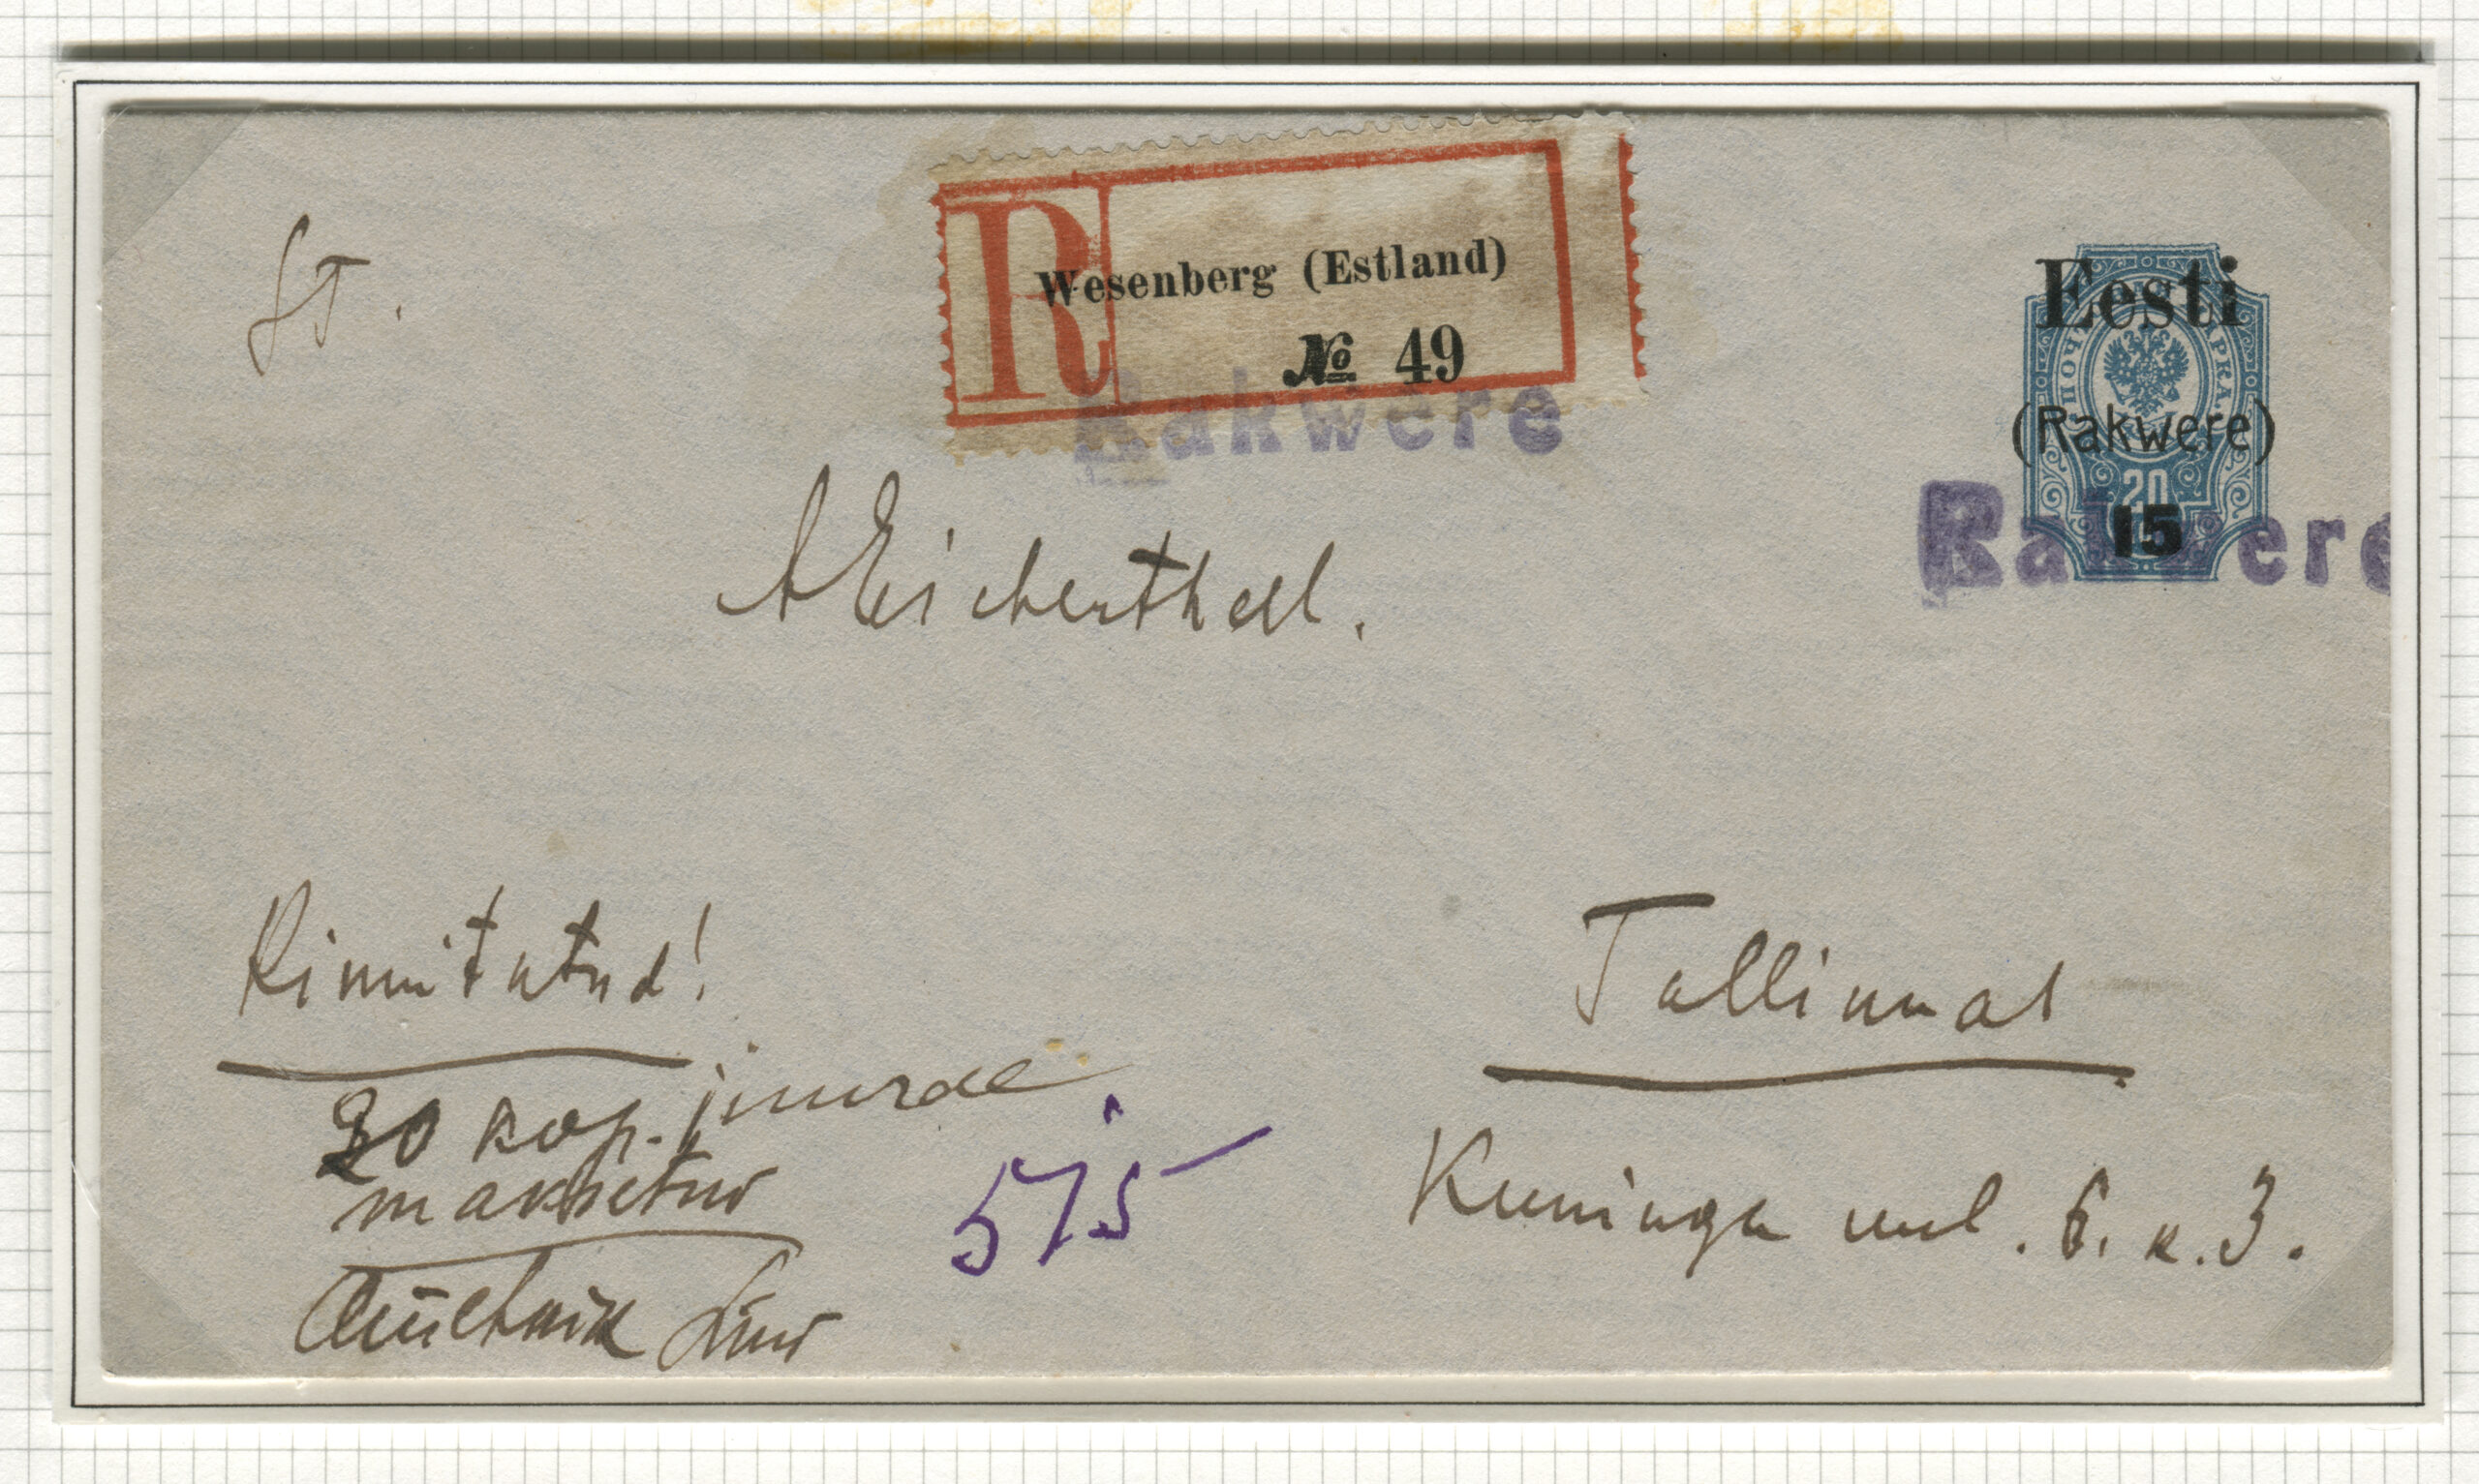 R
Wesenberg (Estland)
№ 49
Rakwere
Eesti
ПОЧ РКА
(Rakwere)
20
15
Rakwere
St.
A Eichenthal.
Kinnitatud!
20 kop. juurde
maksetud
Tallinnas
Kuninga uul. 6. k. 3.
575